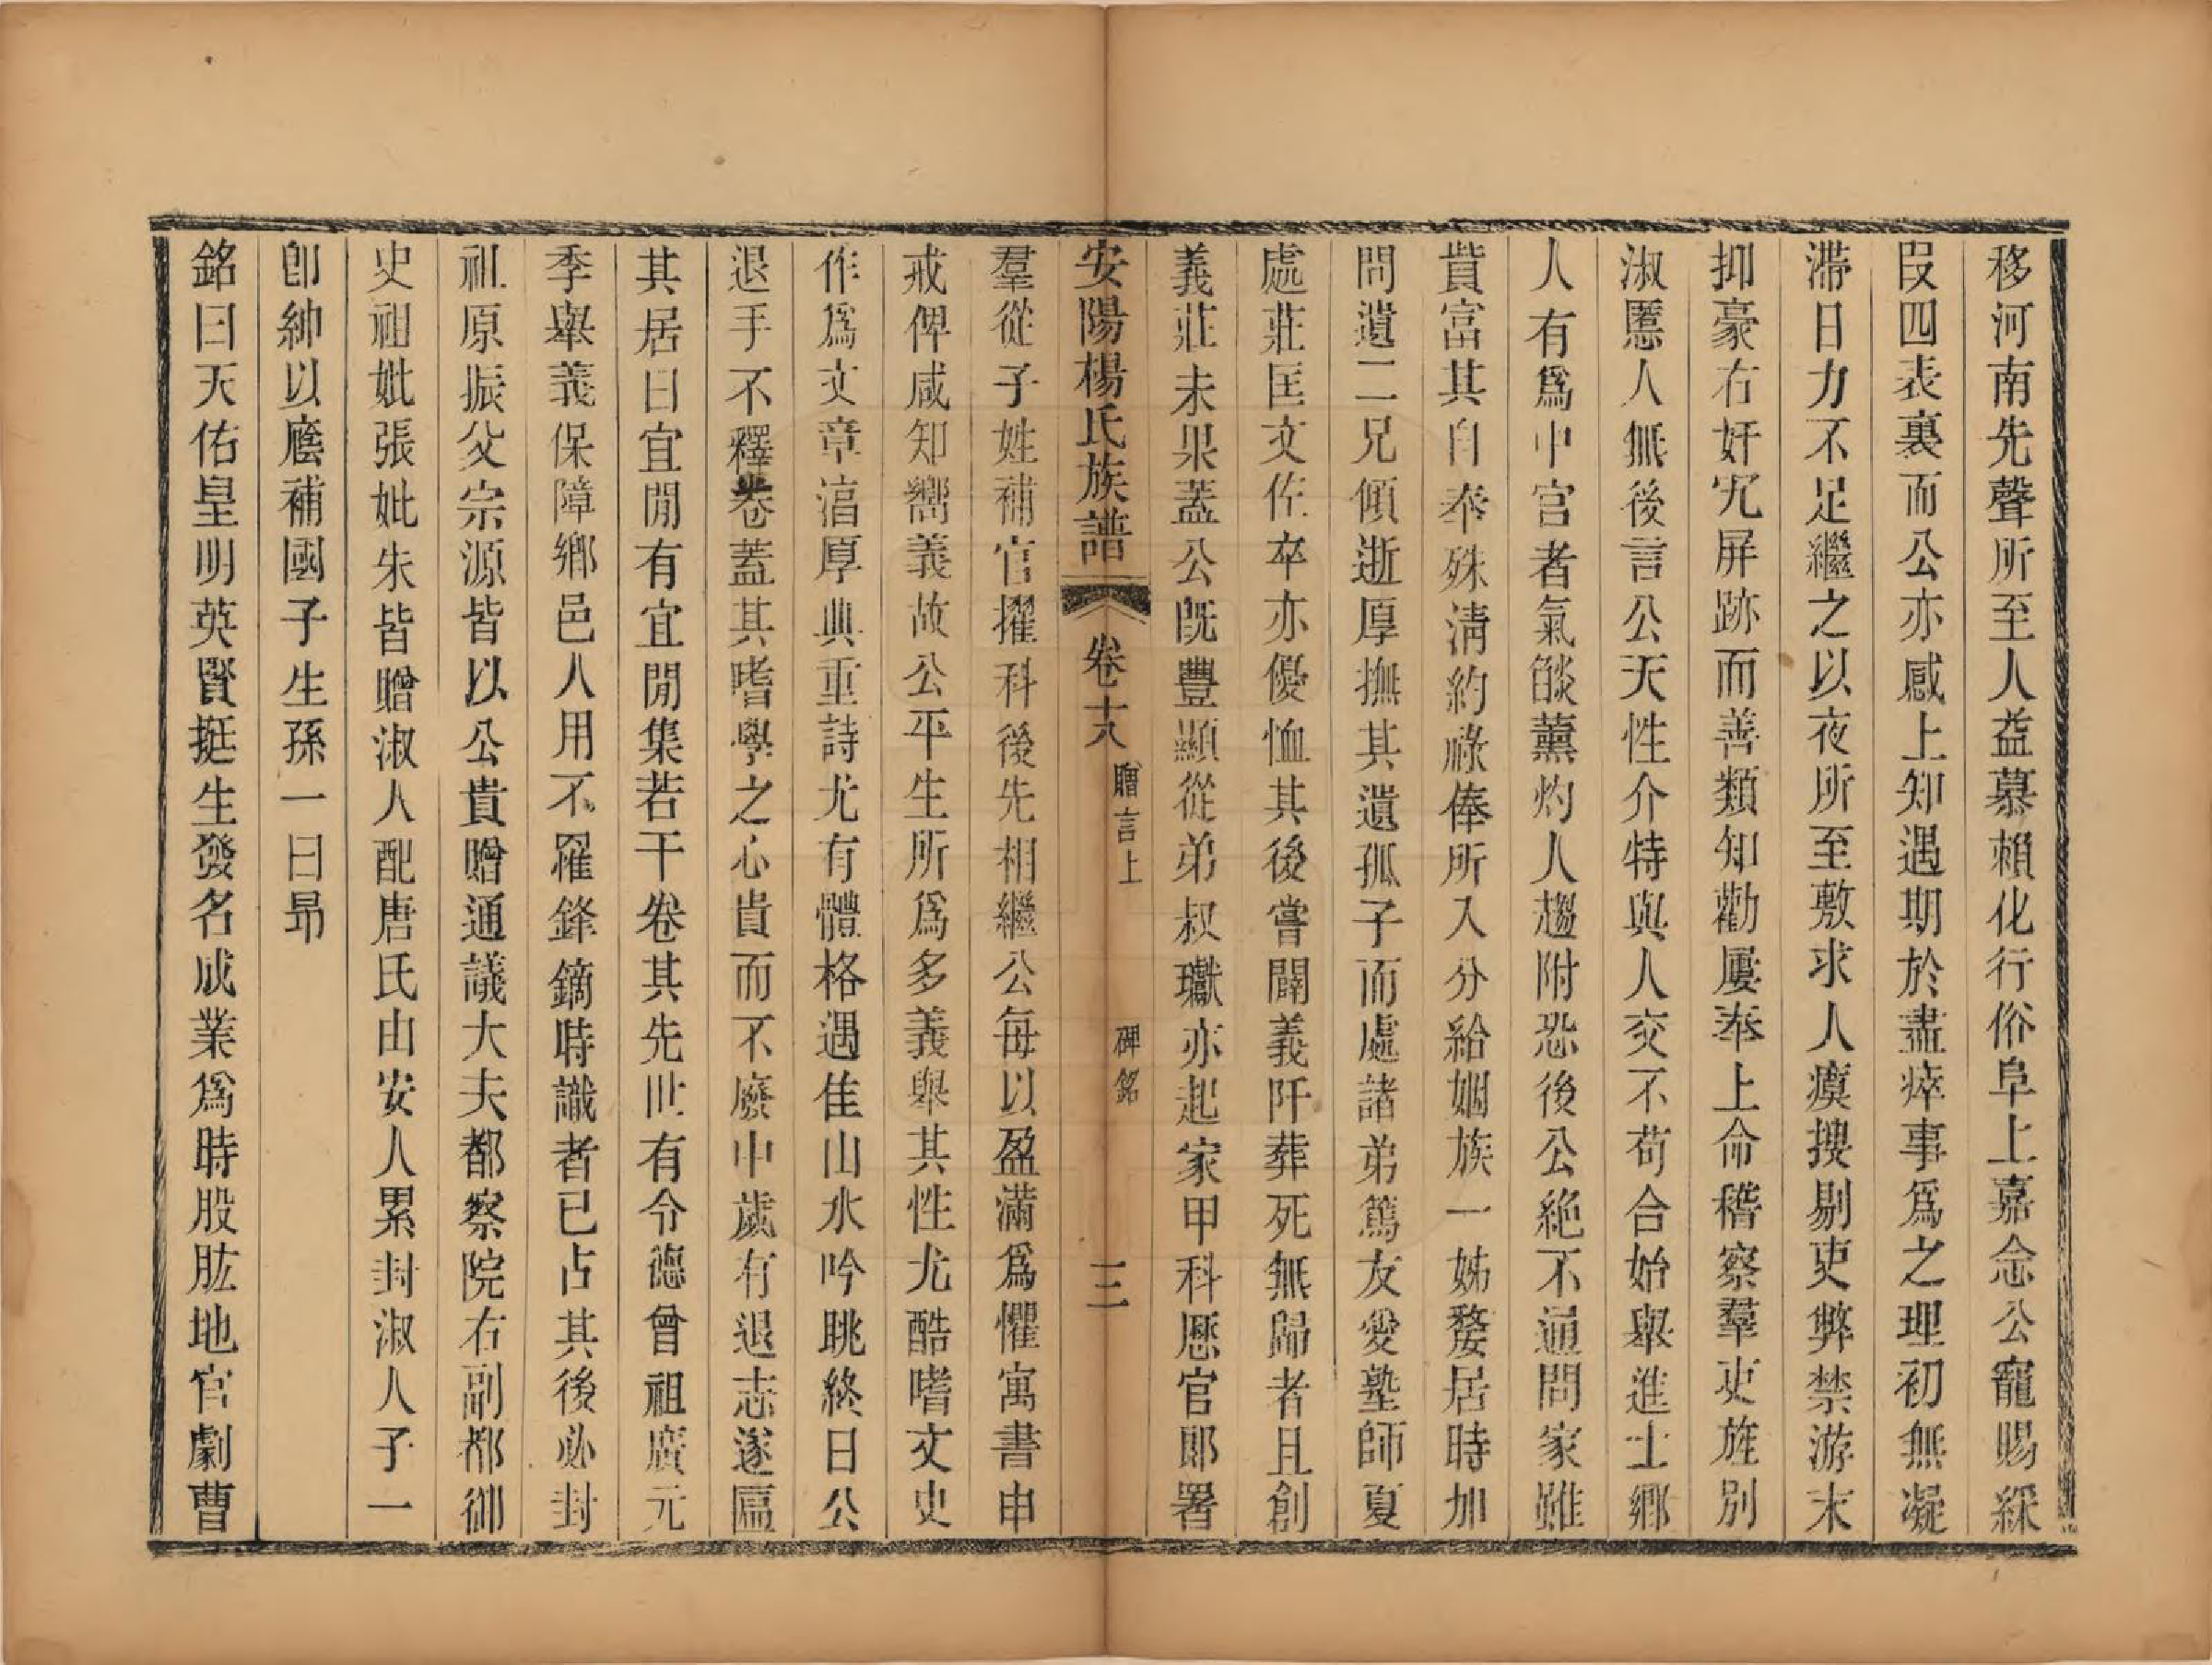 移河南先聲所至人益慕賴化行俗阜上嘉念公寵賜綵
叚四表裏而公亦感上知遇期於盡瘁事爲之理初無凝
滯日力不足繼之以夜所至敷求人瘼搜剔吏弊禁游末
抑豪右奸宄屏跡而善類知勸屢奉上命稽察羣吏旌别
淑慝人無後言公天性介特與人交不苟合始舉進士鄉
人有爲中官者氣燄薰灼人趨附恐後公絶不通問家雖
貲富其自奉殊淸約祿俸所入分給姻族一姊嫠居時加
問遺二兄傾逝厚撫其遺孤子而處諸弟篤友愛塾師夏
處莊匡文佐卒亦優恤其後嘗闢義阡葬死無歸者且創
義莊未果葢公旣豐顯從弟叔璥亦起家甲科歷官郎署
安陽楊氏族譜 卷十八 贈言上 碑銘 三
羣從子姓補官擢科後先相繼公每以盈滿爲懼寓書申
戒俾咸知嚮義故公平生所爲多義舉其性尤酷嗜文史
作爲文章滀厚典重詩尤有體格遇佳山水吟眺終日公
退手不釋卷葢其嗜學之心貴而不廢中歲有退志遂匾
其居曰宜閒有宜閒集若干卷其先世有令德曾祖廣元
季舉義保障鄉邑人用不罹鋒鏑時識者已占其後必封
祖原振父宗源皆以公貴贈通議大夫都察院右副都御
史祖妣張妣朱皆贈淑人配唐氏由安人累封淑人子一
卽紳以廕補國子生孫一曰昂
銘曰天佑皇明英賢挺生發名成業爲時股肱地官劇曹